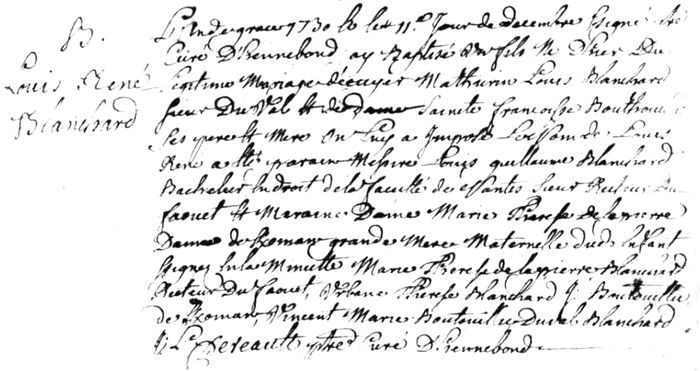 B.
Louis René
Blanchard
L'an de grace 1730 le 11e Jour de decembre Signé
Curé D'hennebond ay Baptisé un fils Né D'hier Du
Legitime Mariage d'écuyer Mathurin Louis Blanchard
sieur Du Val et de Dame Sainte francoise
Ses pere et Mere on Luy a Imposé Le Nom de Louis
René a été parain Messire Louis guillaume Blanchard
Bachelier en droit de la faculté de Nantes sieur Recteur Du
faouet et Maraine Dame Marie Therese de la pierre
Dame de Roman grande Mere Maternelle dud. Enfant
Signez En la Minutte Marie Therese de la pierre Blanchard
Recteur Du faouet, Urbane Therese Blanchard
de Roman, Vincent Marie Bouteuiller Duval Blanchard
ptre Curé D'hennebond